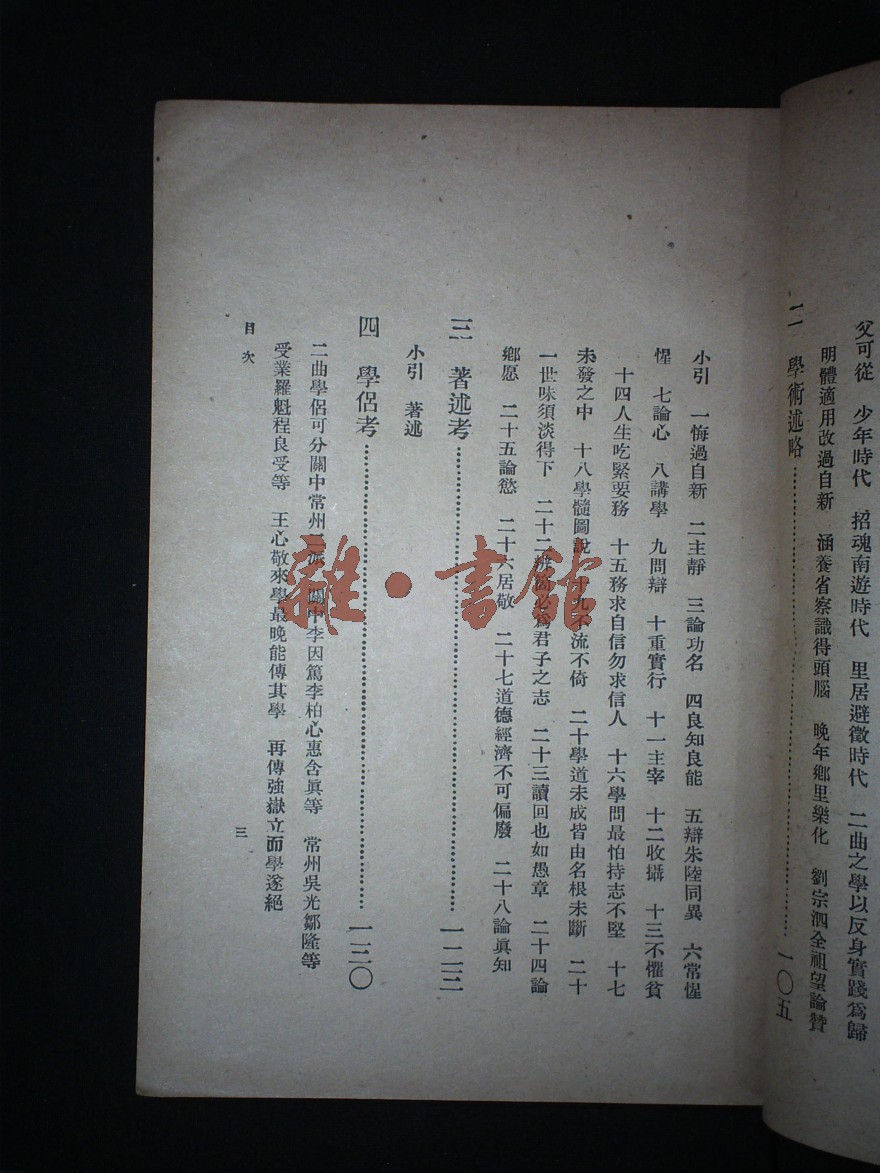 父可從　少年時代　招魂南遊時代　里居避徵時代　二曲之學以反身實踐爲歸
明體適用改過自新　涵養省察識得頭腦　晚年鄉里樂化　劉宗泗全祖望論贊
二　學術述略…………一〇五
小引　一悔過自新　二主靜　三論功名　四良知良能　五辯朱陸同異　六常惺
惺　七論心　八講學　九問辯　十重實行　十一主宰　十二收攝　十三不懼貧
十四人生吃緊要務　十五務求自信勿求信人　十六學問最怕持志不堅　十七
未發之中　十八學髓圖說　十九不流不倚　二十學道未成皆由名根未斷　二十
一世味須淡得下　二十二辨箇必爲君子之志　二十三讀回也如愚章　二十四論
鄉愿　二十五論慾　二十六居敬　二十七道德經濟不可偏廢　二十八論眞知
三　著述考…………一二三
小引　著述
四　學侶考…………一三〇
二曲學侶可分關中常州二派　關中李因篤李柏心惠含眞等　常州吳光鄒隆等
受業羅魁程良受等　王心敬來學最晚能傳其學　再傳強嶽立而學遂絕
目次
三
雜·書館